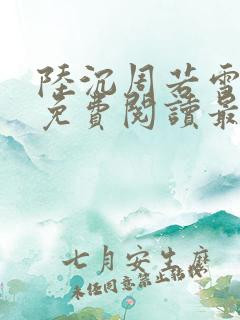 陸沉周若雪
免費閱讀最
七月安生麼
未任同意禁止轉摸